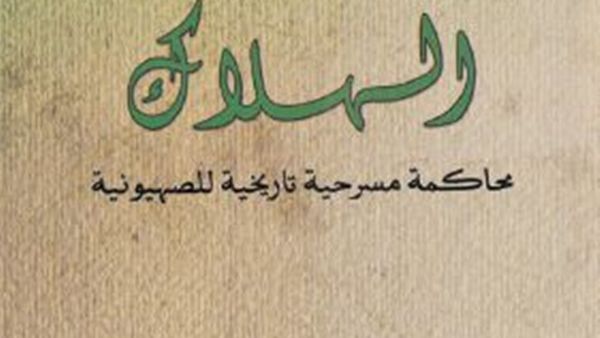 الهلاك
محاكمة مسرحية تاريخية للصهيونية